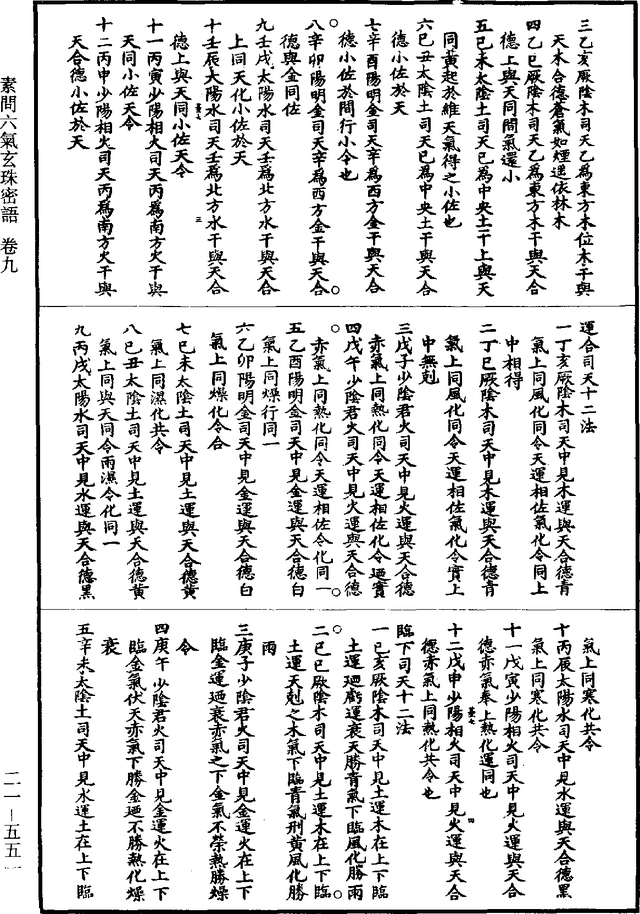 三乙亥厥陰木司天乙爲東方木位木干與
天木合德蒼氣如煙遞依林木
四乙巳厥陰木司天乙爲東方木干與天合
德上與天同間氣還小
五己未太陰土司天己爲中央土干上與天
同黃起於維天氣得之小佐也
六己丑太陰土司天己爲中央土干與天合
德小佐於天
七辛酉陽明金司天辛爲西方金干與天合
德小佐於間行小令也
八辛卯陽明金司天辛爲西方金干與天合
德與金同佐
九壬戌太陽水司天壬爲北方水干與天合
上同天化小佐於天
十壬辰太陽水司天壬爲北方水干與天合
德上與天同小佐天令
十一丙寅少陽相火司天丙爲南方火干與
天同小佐天令
十二丙申少陽相火司天丙爲南方火干與
天合德小佐於天
素問六氣玄珠密語 卷九
運合司天十二法
一丁亥厥陰木司天中見木運與天合德青
氣上同風化同令天運相佐氣化令同上
中相得
二丁巳厥陰木司天中見木運與天合德青
氣上同風化同令天運相佐氣化令實上
中無剋
三戊子少陰君火司天中見火運與天合德
赤氣上同熱化同令天運相佐化令廼實
四戊午少陰君火司天中見火運與天合德
赤氣上同熱化同令天運相佐令化同一
五乙酉陽明金司天中見金運與天合德白
氣上同燥行同一
六乙卯陽明金司天中見金運與天合德白
氣上同燥化令合
七己未太陰土司天中見土運與天合德黃
氣上同濕化共令
八己丑太陰土司天中見土運與天合德黃
氣上同與天同令雨濕令化同一
九丙戌太陽水司天中見水運與天合德黑
氣上同寒化共令
十丙辰太陽水司天中見水運與天合德黑
氣上同寒化共令
十一戊寅少陽相火司天中見火運與天合
德赤氣奉上熱化運同也
十二戊申少陽相火司天中見火運與天合
德赤氣上同熱化共令也
臨下司天十二法
一己亥厥陰木司天中見土運木在上下臨
土運廼虧運衰天勝青氣下臨風化勝雨
二己巳厥陰木司天中見土運木在上下臨
土運天剋之木氣下臨青氣刑黃風化勝
雨
三庚子少陰君火司天中見金運火在上下
臨金運廼衰赤氣之下金氣不榮熱勝燥
令
四庚午少陰君火司天中見金運火在上下
臨金氣伏天赤氣下勝金廼不勝熱化燥
衰
五辛未太陰土司天中見水運土在上下臨
二一—五五一